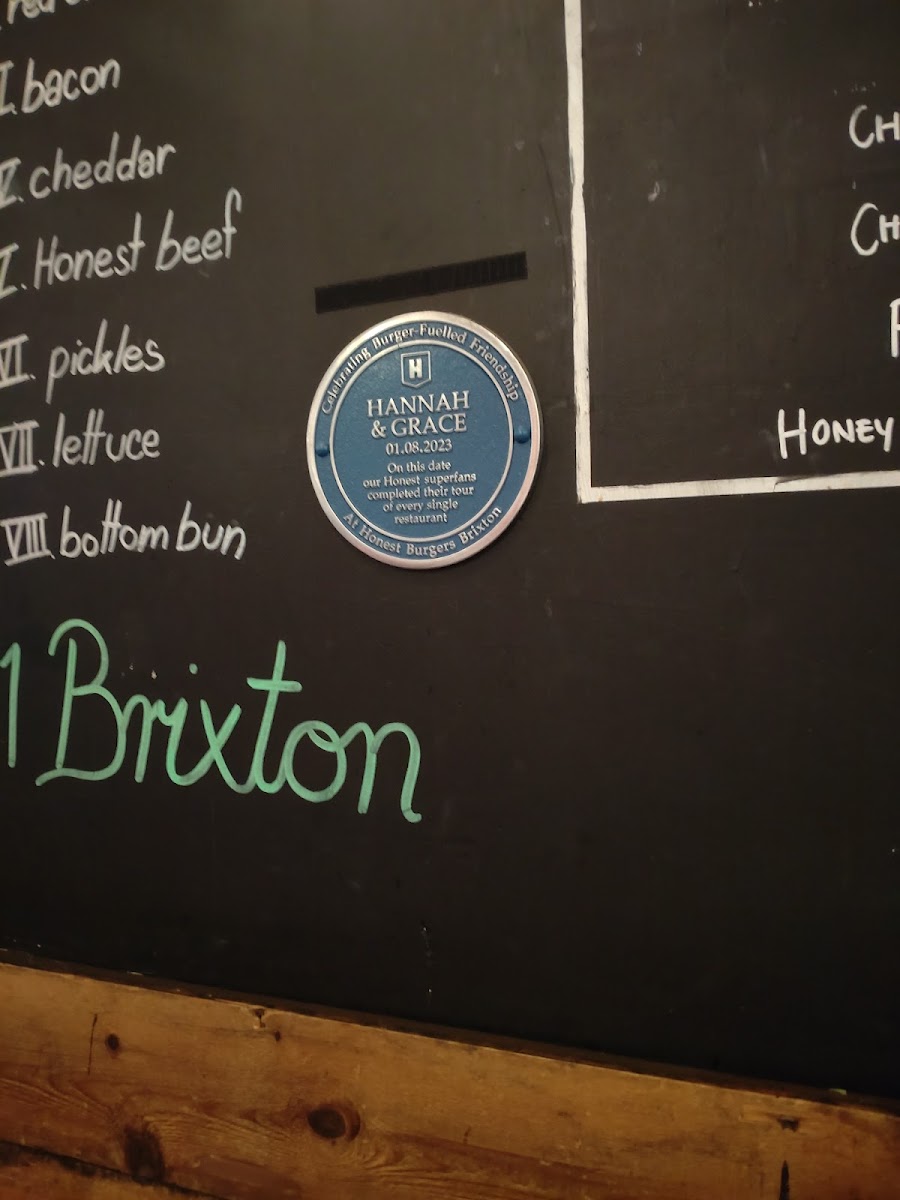 bacon
cheddar
Honest beef
VI. pickles
VII. lettuce
VIII. bottom bun
1 Brixton
Celebrating Burger-Fuelled Friendship
H
HANNAH
& GRACE
01.08.2023
On this date
our Honest superfans
completed their tour
of every single
restaurant
At Honest Burgers Brixton
CH
CH
HONEY